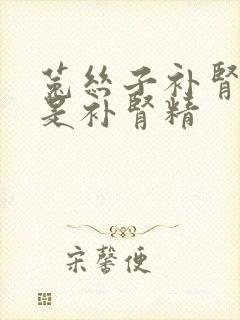 菟丝子补肾
是补肾精
宋馨便